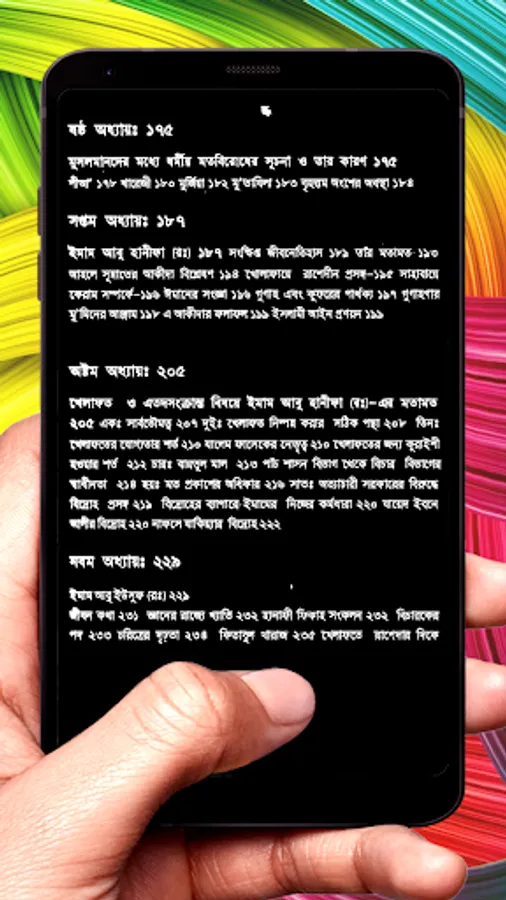 ষষ্ঠ অধ্যায়ঃ ১৭৫
মুসলমানদের মধ্যে ধর্মীয় মতবিরোধের সূচনা ও তার কারণ ১৭৫
শীআ' ১৭৮ খারেজী ১৮০ মুর্জিয়া ১৮২ মু'তাযিলা ১৮৩ বৃহত্তম অংশের অবস্থা ১৮৪
সপ্তম অধ্যায়ঃ ১৮৭
ইমাম আবু হানীফা (রঃ) ১৮৭ সংক্ষিপ্ত জীবনেতিহাস ১৮৯ তাঁর মতামত-১৯৩
আহলে সুন্নাতের আকীদা বিশ্লেষণ ১৯৪ খোলাফায়ে রাশেদীন প্রসঙ্গ-১৯৫ সাহাবায়ে
কেরাম সম্পর্কে-১৯৬ ঈমানের সংজ্ঞা ১৯৬ গুণাহ এবং কুফরের পার্থক্য ১৯৭ গুণাহগার
মু'মিনের আঞ্জাম ১৯৮ এ আকীদার ফলাফল ১৯৯ ইসলামী আইন প্রণয়ন ১৯৯
অষ্টম অধ্যায়ঃ ২০৫
খেলাফত ও এতদসংক্রান্ত বিষয়ে ইমাম আবু হানীফা (রঃ)-এর মতামত
২০৫ একঃ সার্বভৌমত্ব ২০৭ দুইঃ খেলাফত নিষ্পন্ন করার সঠিক পন্থা ২০৮ তিনঃ
খেলাফতের যোগ্যতার শর্ত ২১০ যালেম ফাসেকের নেতৃত্ব ২১০ খেলাফতের জন্য কুরাইশী
হওয়ার শর্ত ২১২ চারঃ বায়তুল মাল ২১৩ পাঁচ শাসন বিভাগ থেকে বিচার বিভাগের
স্বাধীনতা ২১৪ ছয়ঃ মত প্রকাশের অধিকার ২১৬ সাতঃ অত্যাচারী সরকারের বিরুদ্ধে
বিদ্রোহ প্রসঙ্গ ২১৯ বিদ্রোহের ব্যাপারে ইমামের নিজের কর্মধারা ২২০ যায়েদ ইবনে
আলীর বিদ্রোহ ২২০ নাফসে যাকিয়্যার বিদ্রোহ ২২২
নবম অধ্যায়ঃ ২২৯
ইমাম আবু ইউসুফ (রঃ) ২২৯
জীবন কথা ২৩১ জ্ঞানের রাজ্যে খ্যাতি ২৩২ হানাফী ফিকাহ সংকলন ২৩২ বিচারকের
পদ ২৩৩ চরিত্রের দৃঢ়তা ২৩৪ কিতাবুল খারাজ ২৩৫ খেলাফতে রাশেদার দিকে